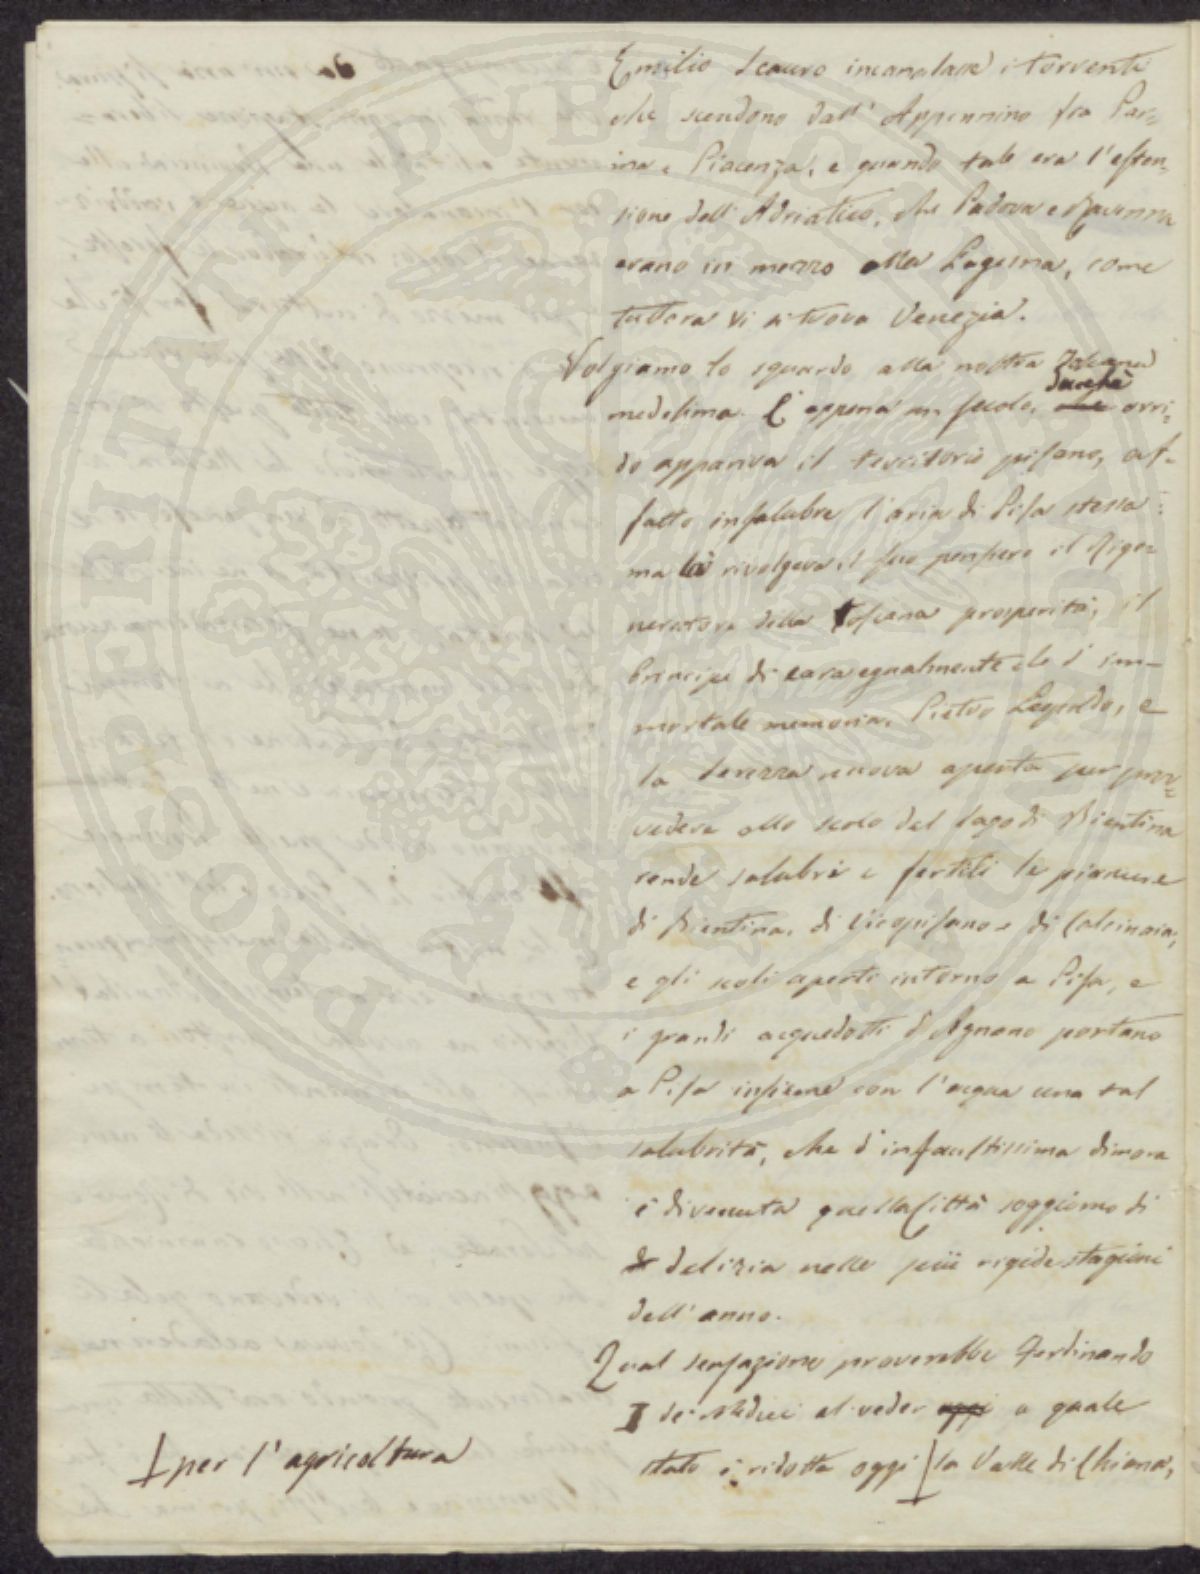 Emilio Scauro incanalasse i torrenti
che scendono dall' Appennino fra Par=
ma e Piacenza, e quando tale era l'esten=
sione dell' Adriatico, che Padova e Ravenna
erano in mezzo alla Laguna, come
tuttora vi si trova Venezia.
Volgiamo lo sguardo alla nostra Toscana
dacchè
medesima. È appena un secolo, che orri=
do appariva il territorio pisano, af=
fatto insalubre l'aria di Pisa stessa:
ma là rivolgeva il suo pensiero il Rige=
neratore della Toscana prosperità, il
Principe di cara egualmente che d' im=
mortale memoria, Pietro Leopoldo, e
la Serezza nuova aperta per prov=
vedere allo scolo del Lago di Bientina
rende salubri e fertili le pianure
di Bientina, di Vicopisano e di Calcinaia,
e gli scoli aperti intorno a Pisa, e
i grandi acquedotti d'Agnano portano
a Pisa insieme con l'acqua una tal
salubrità, che d' infaustissima dimora
è divenuta quella Città soggiorno di
di delizia nelle più rigide stagioni
dell' anno.
Qual sensazione proverebbe Ferdinando
I dei Medici al veder oggi a quale
stato è ridotta oggi la Valle di Chiana,
per l' agricoltura
PUBLICAE PROSPERITATI